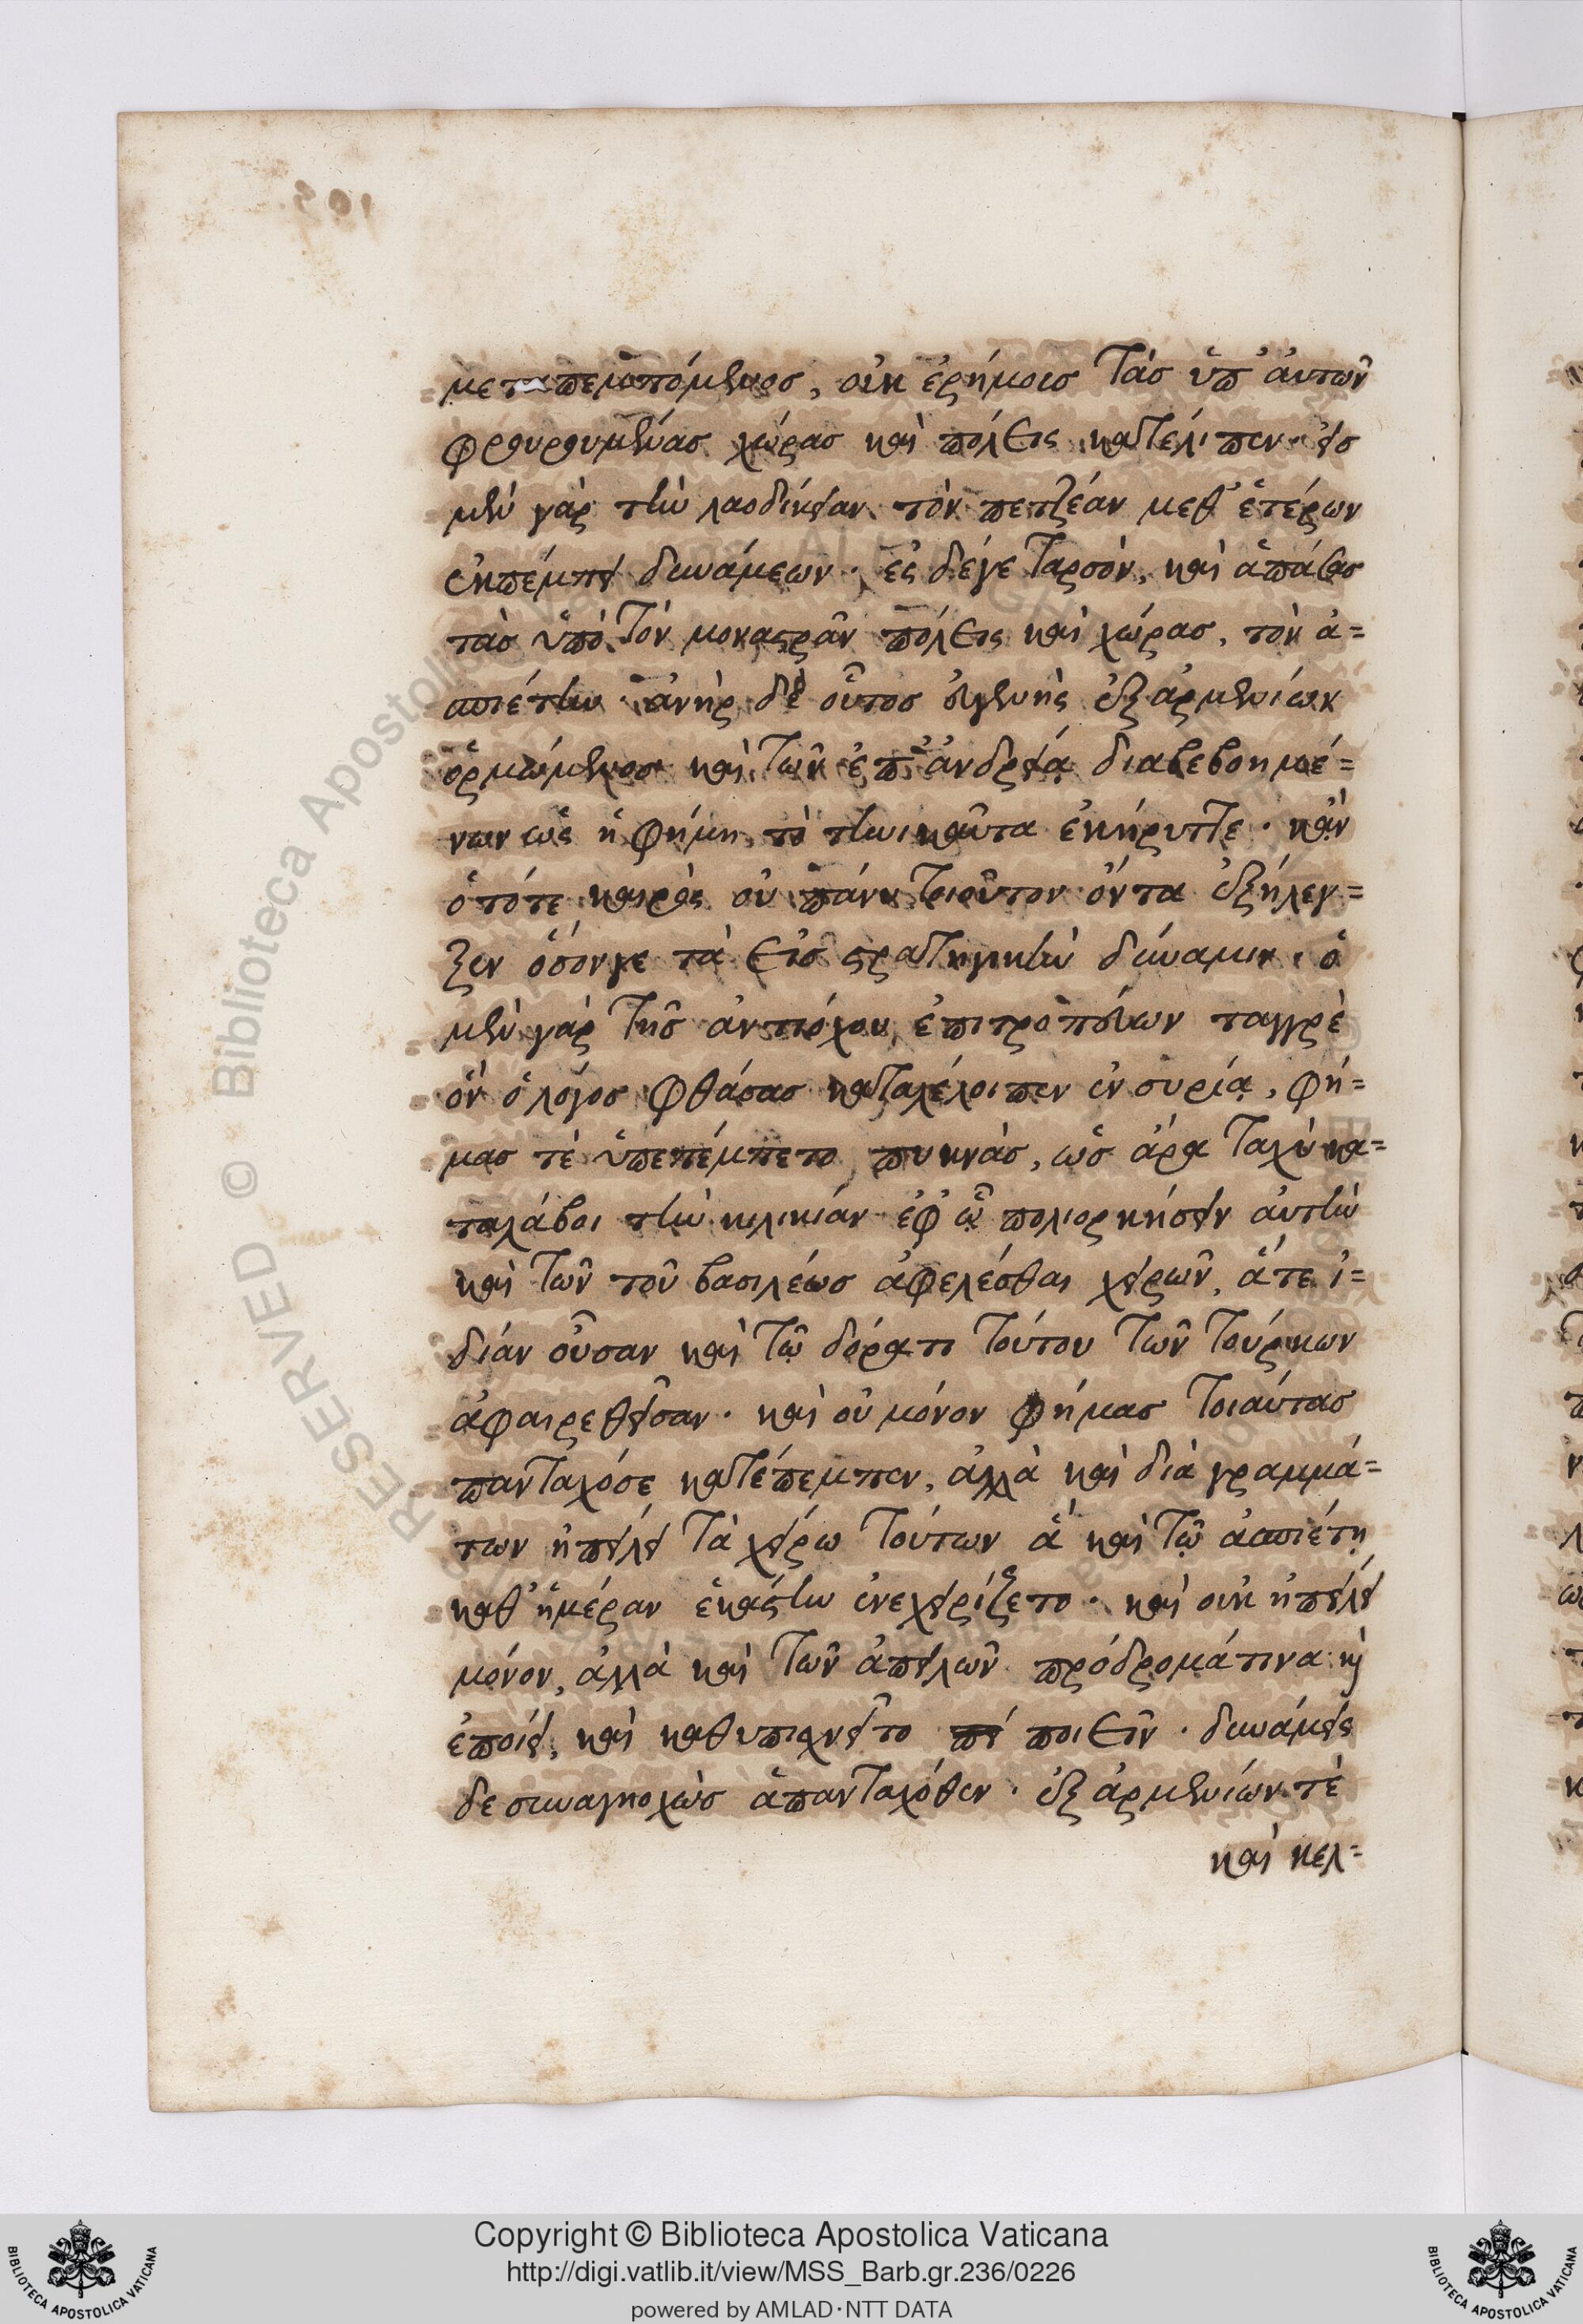 μεταπεμπόμενος, οὐκ ἐρήμοις τὰς ὑπ' αὐτῶν
φρουρουμένας χώρας καὶ πόλεις κατέλιπεν· εἰς
μὲν γὰρ τὴν λαοδίκειαν τὸν πετζέαν μεθ' ἑτέρων
ἐκπέμπει δυνάμεων· ἐς δέγε ταρσὸν, καὶ ἁπάσας
τὰς ὑπὸ τὸν μοναστρᾶν πόλεις καὶ χώρας, τὸν ἀ=
σπιέτην· ἀνὴρ δὲ οὗτος εὐγενὴς ἐξ ἀρμενίων
ὁρμώμενος καὶ τῶν ἐπ' ἀνδρείᾳ διαβεβοημέ=
νων ὡς ἡ φήμη τὸ τηνικαῦτα ἐκήρυττε· κἂν
ὁ τότε καιρὸς οὐ πάνυ τοιοῦτον ὄντα ἐξήλεγ=
ξεν ὅσονγε τὰ εἰς στρατηγικὴν δύναμιν· ὁ
μὲν γὰρ τῆς ἀντιόχου ἐπιτροπεύων ταγγρὲ
ὃν ὁ λόγος φθάσας καταλέλοιπεν ἐν συρίᾳ, φή=
μας τὲ ὑπεπέμπετο πυκνὰς, ὡς ἄρα ταχὺ κα=
ταλάβοι τὴν κιλικίαν ἐφ' ᾧ πολιορκήσειν αὐτὴν
καὶ τῶν τοῦ βασιλέως ἀφελέσθαι χειρῶν, ἅτε ἰ=
δίαν οὖσαν καὶ τῷ δόρατι τούτου τῶν τούρκων
ἀφαιρεθεῖσαν· καὶ οὐ μόνον φήμας τοιαύτας
πανταχόσε κατέπεμπεν, ἀλλὰ καὶ διὰ γραμμά=
των ἠπείλει τὰ χείρω τούτων ἃ καὶ τῷ ἀσπιέτῃ
καθ' ἡμέραν ἑκάστην ἐνεχειρίζετο· καὶ οὐκ ἠπείλει
μόνον, ἀλλὰ καὶ τῶν ἀπειλῶν πρόδρομάτινα κ̀
ἐποίει, καὶ καθυπισχνεῖτο πέ ποιεῖν· δυνάμεις
δε συναγηοχὼς ἁπανταχόθεν· ἐξ ἀρμενίων τὲ
καὶ κελ=
Copyright © Biblioteca Apostolica Vaticana
http://digi.vatlib.it/view/MSS_Barb.gr.236/0226
powered by AMLAD·NTT DATA
BIBLIOTECA APOSTOLICA VATICANA
BIBLIOTECA APOSTOLICA VATICANA